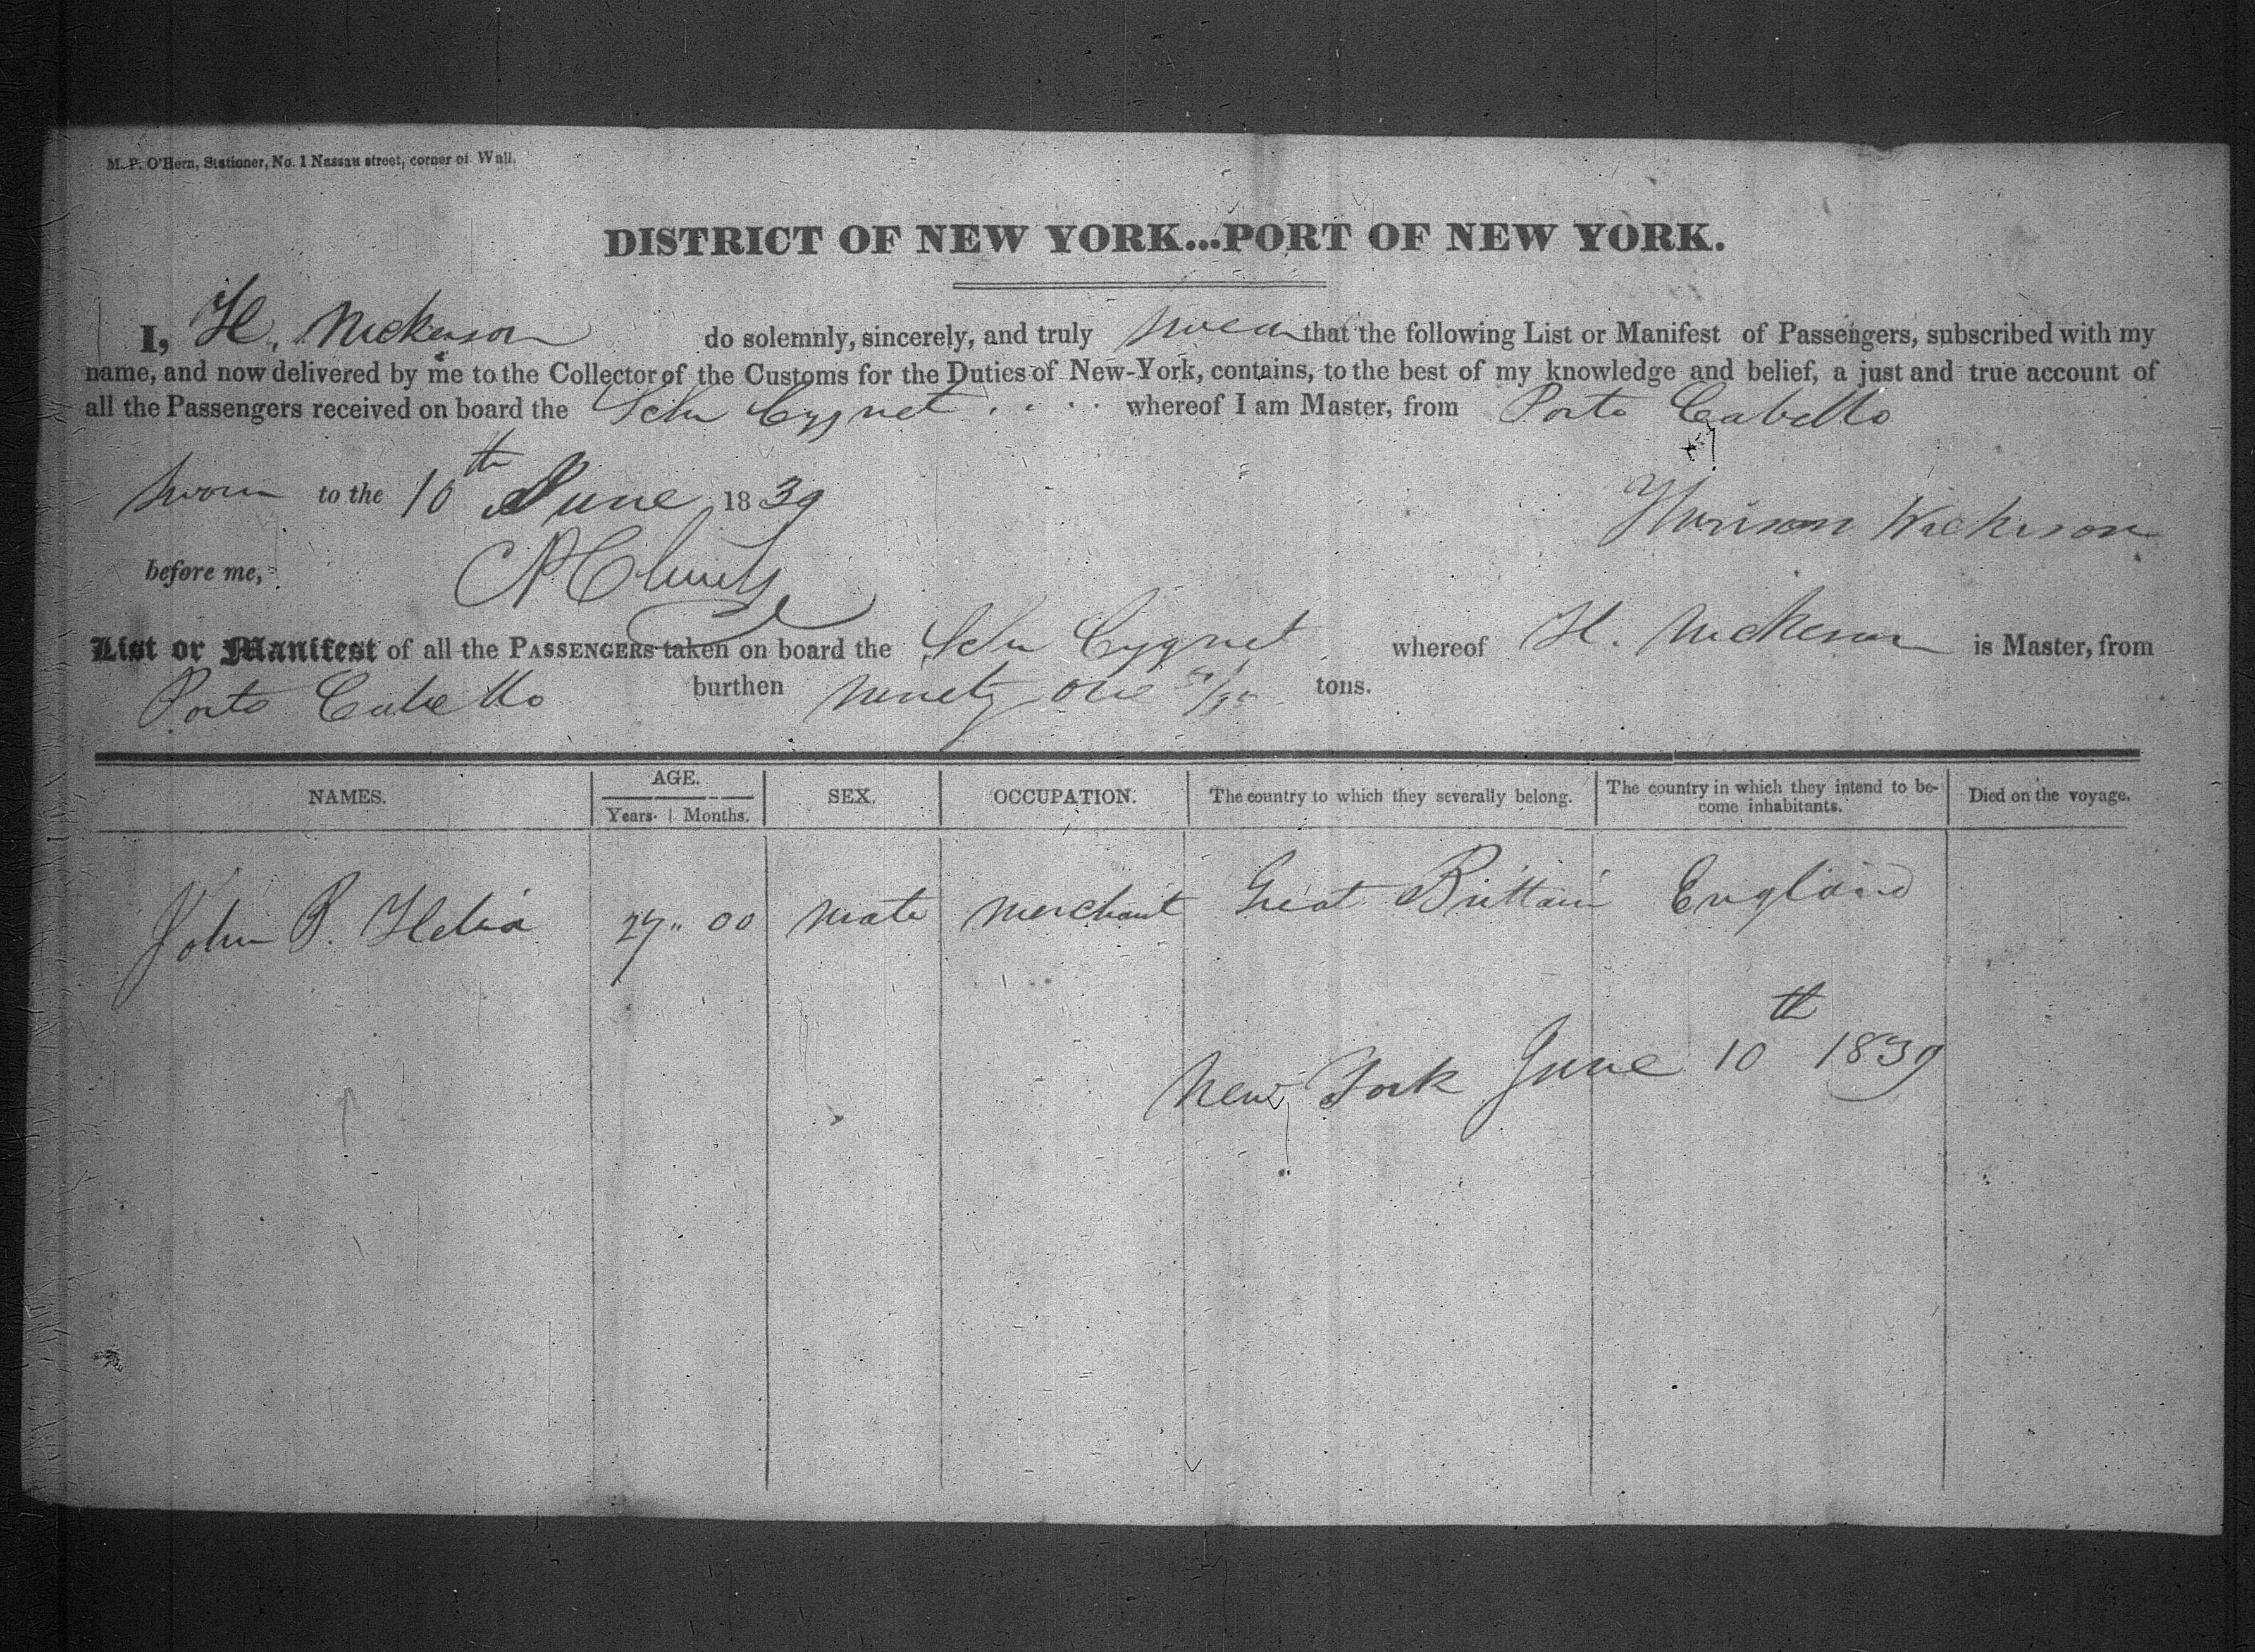 M. P. O'Hern, Stationer, No. 1 Nassau street, corner of Wall.
DISTRICT OF NEW YORK...PORT OF NEW YORK.
I, H. Nickerson do solemnly, sincerely, and truly swear that the following List or Manifest of Passengers, subscribed with my
name, and now delivered by me to the Collector of the Customs for the Duties of New-York, contains, to the best of my knowledge and belief, a just and true account of
all the Passengers received on board the Schr Cygnet . . . . whereof I am Master, from Porto Cabello
sworn to the 10th June 1839
Nickerson
before me,
List or Manifest of all the PASSENGERS taken on board the Schr Cygnet whereof H. Nickerson is Master, from
Porto Cabello burthen ninety one tons.
NAMES. AGE. Years. Months. SEX. OCCUPATION. The country to which they severally belong. The country in which they intend to become inhabitants. Died on the voyage.
John P. 27 " 00 Male Merchant Great Brittain England
New York June 10th 1839